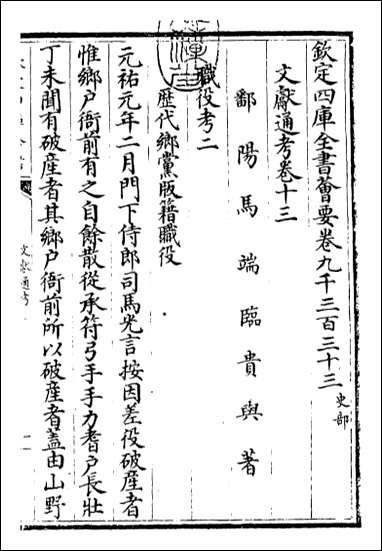 欽定四庫全書薈要卷九千三百三十三 史部
文獻通考卷十三
鄱陽馬端臨貴與著
職役考二
歴代鄉黨版籍職役
元祐元年二月門下侍郎司馬光言按因差役破産者
惟鄉户衙前有之自餘散從承符弓手手力耆户長壯
丁未聞有破産者其鄉户衙前所以破産者蓋由山野
文獻通考